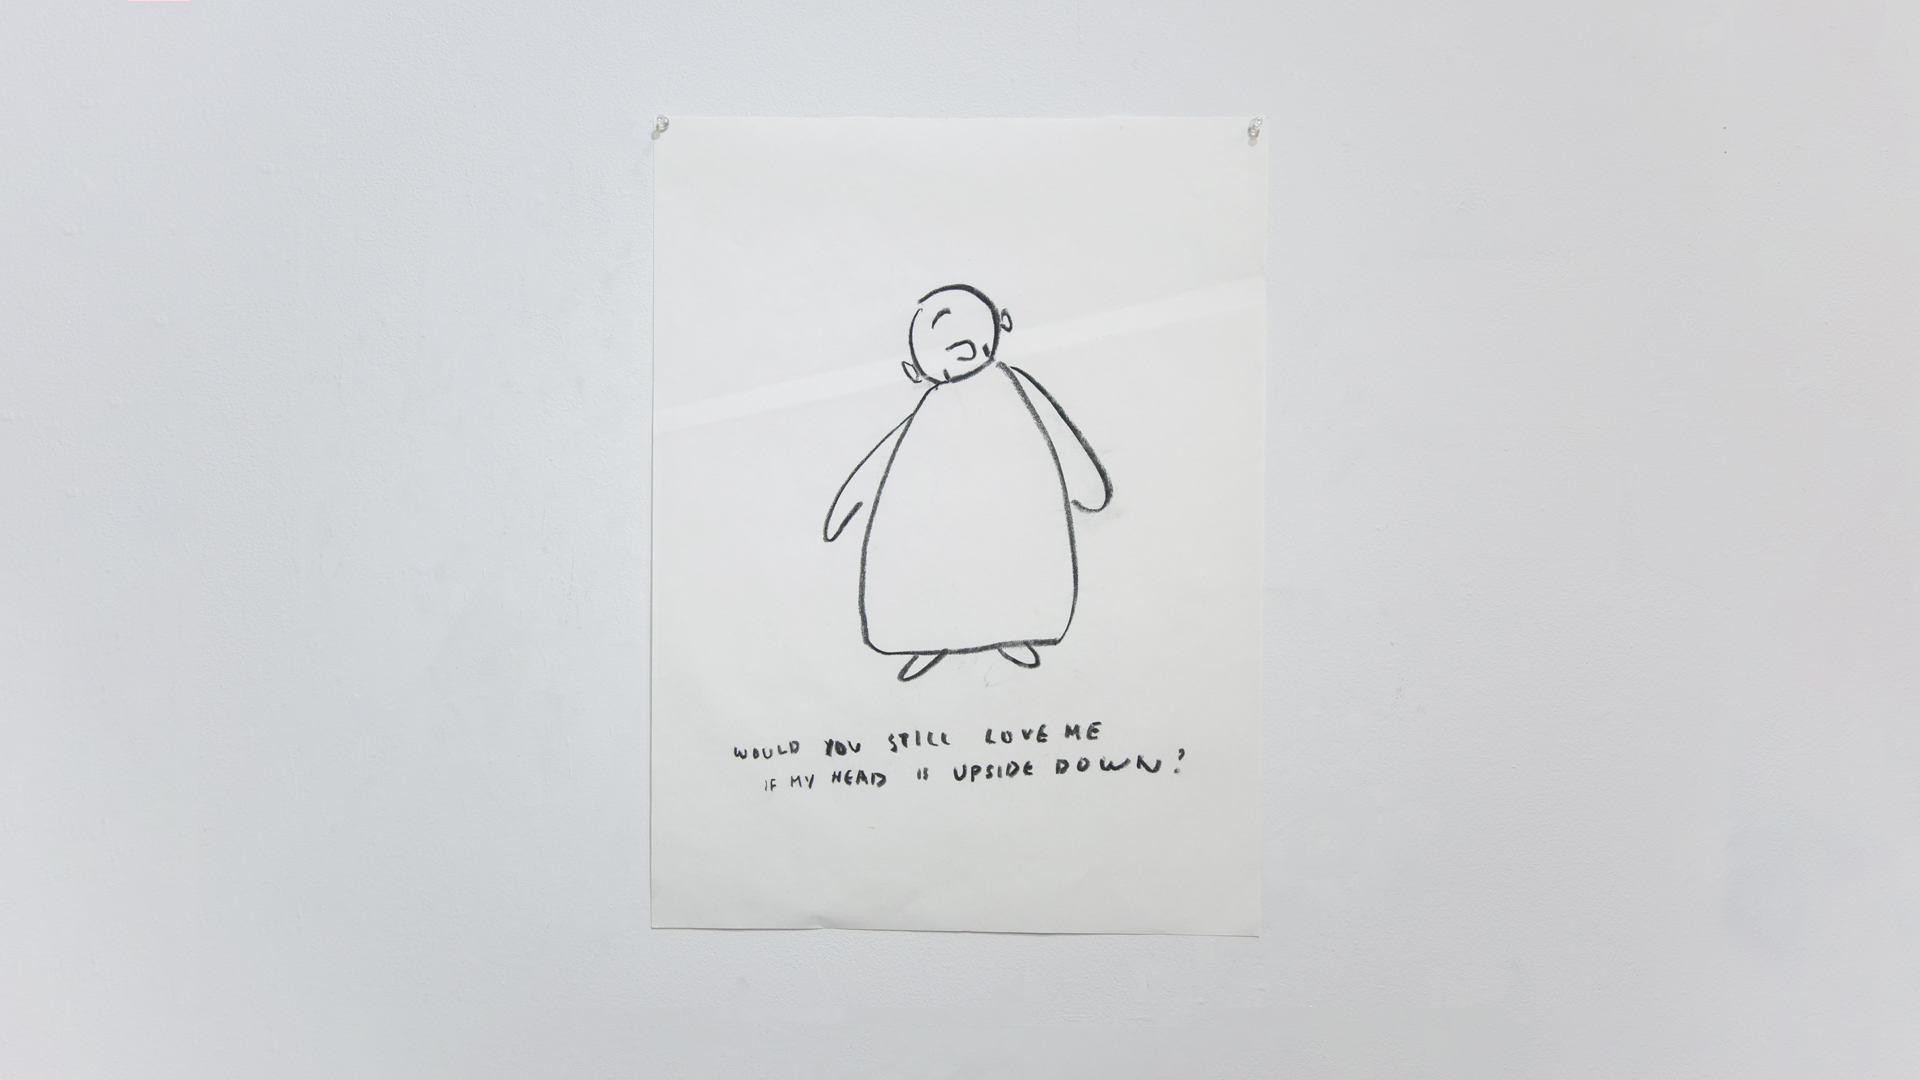 WOULD YOU STILL LOVE ME
IF MY HEAD IS UPSIDE DOWN?